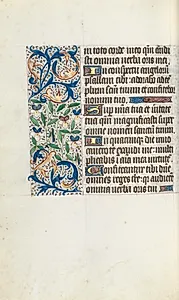 in toto corde meo qm audi
sti omnia verba oris mei
In conspectu angelorum
psallam tibi adorabo ad te
plum sctm tuum et confitebor
nomini tuo
Sup mia tua et veritate
tua qm magnificasti super
omne nomen sanctum tuum
In quacumque die invo
cavero te exaudi me multi
plicabis in aia mea virtute
Confiteantur tibi dne
omnes reges terre qr audierut
omnia verba oris tui